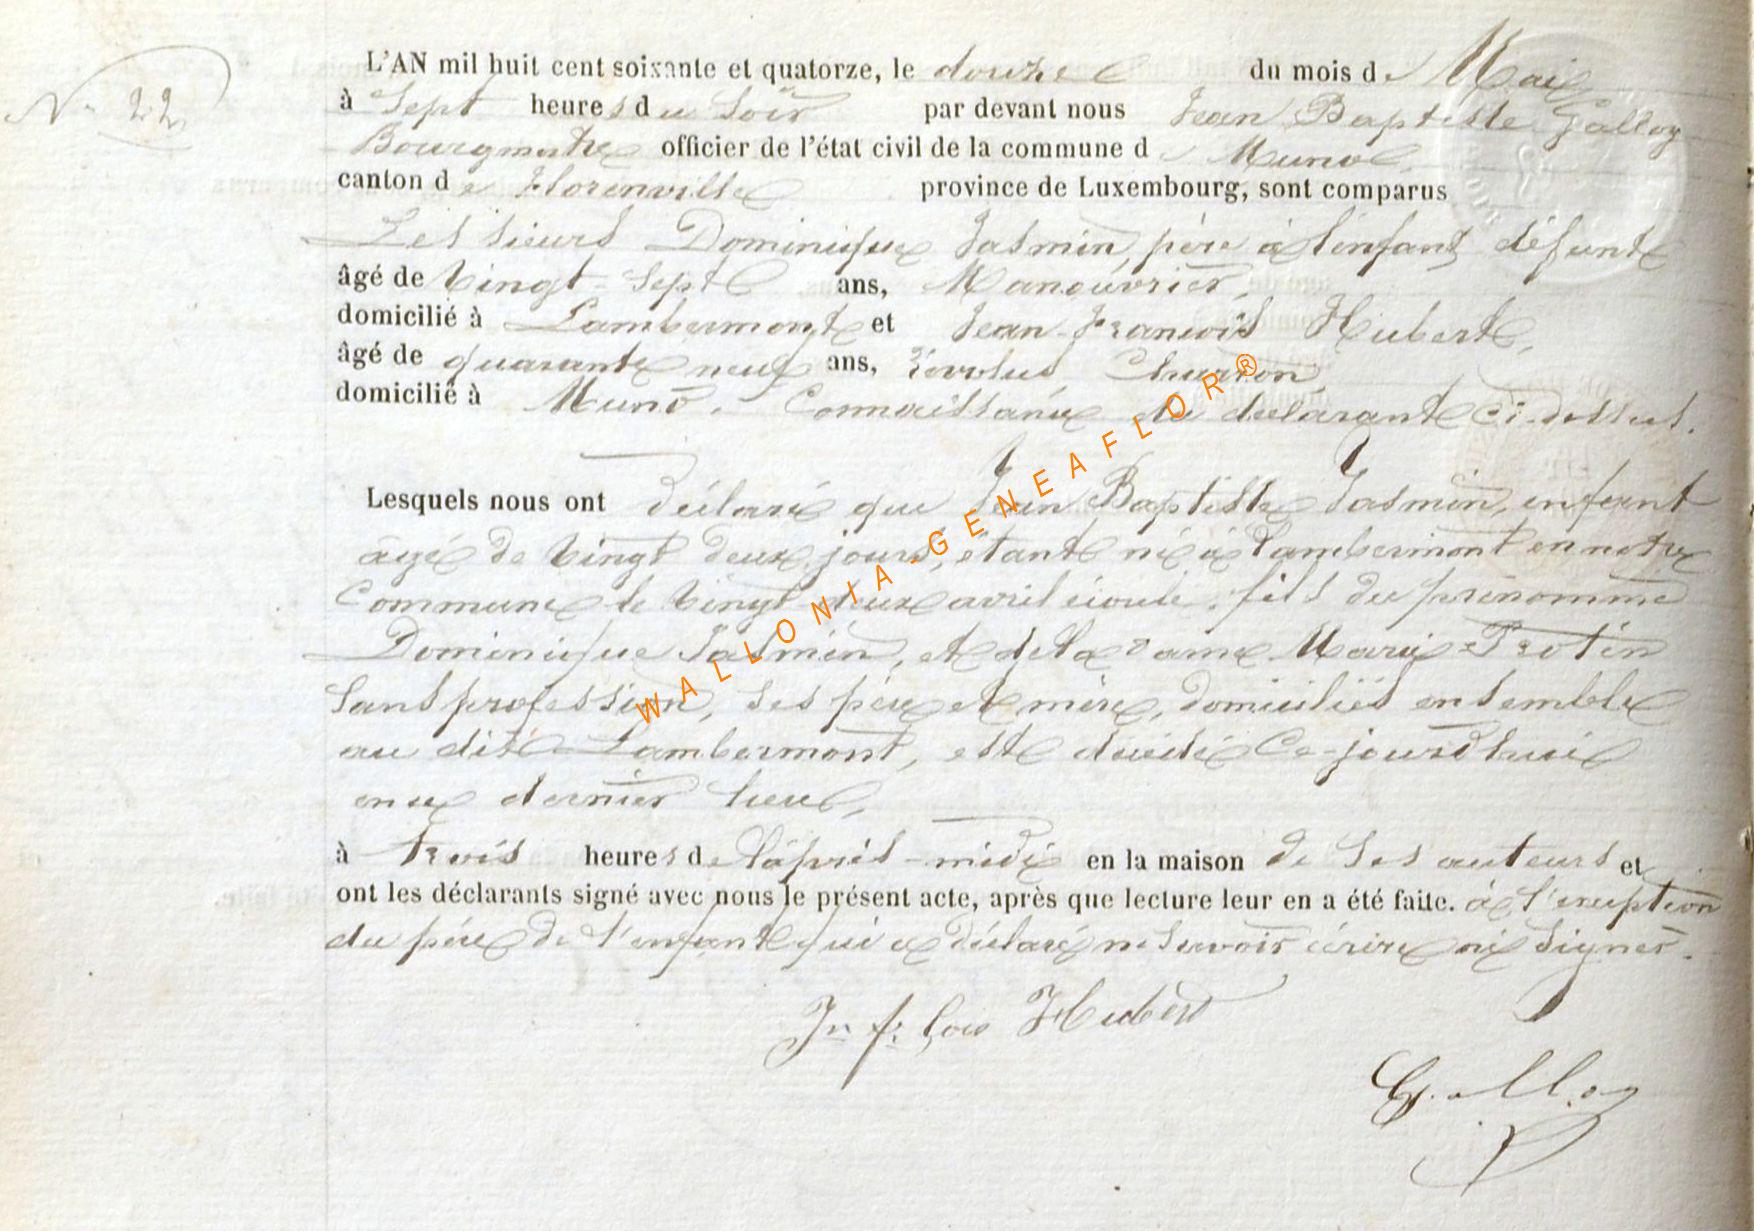 N° 22
L'AN mil huit cent soixante et quatorze, le douze du mois de Mai
à Sept heures du Soir par devant nous Jean Baptiste Galloy
Bourgmestre officier de l'état civil de la commune de Muno
canton de Florenville province de Luxembourg, sont comparus
Les sieurs Dominique Jasmin, père à l'enfant défunt
âgé de vingt-sept ans, Manouvrier,
domicilié à Lambermont et Jean-François Hubert,
âgé de quarante neuf ans, révolus, Charron,
domicilié à Muno. Connaissance du déclarant ci-dessus.
Lesquels nous ont déclaré que Jean Baptiste Jasmin, enfant
âgé de vingt deux jours, étant né à Lambermont en notre
Commune le vingt-deux avril écoulé, fils du prénommé
Dominique Jasmin, et de la dame Marie Protin
sans profession, ses père et mère, domiciliés ensemble
au dit Lambermont, est décédé ce-jourd'hui
en ce dernier lieu,
à trois heures de l'après-midi en la maison de ses auteurs et
ont les déclarants signé avec nous le présent acte, après que lecture leur en a été faite. à l'exception
du père de l'enfant qui a déclaré ne savoir écrire ni signer.
Jn fr. çois Hubert
Galloy
WALLONIA-GENEAFLOR®